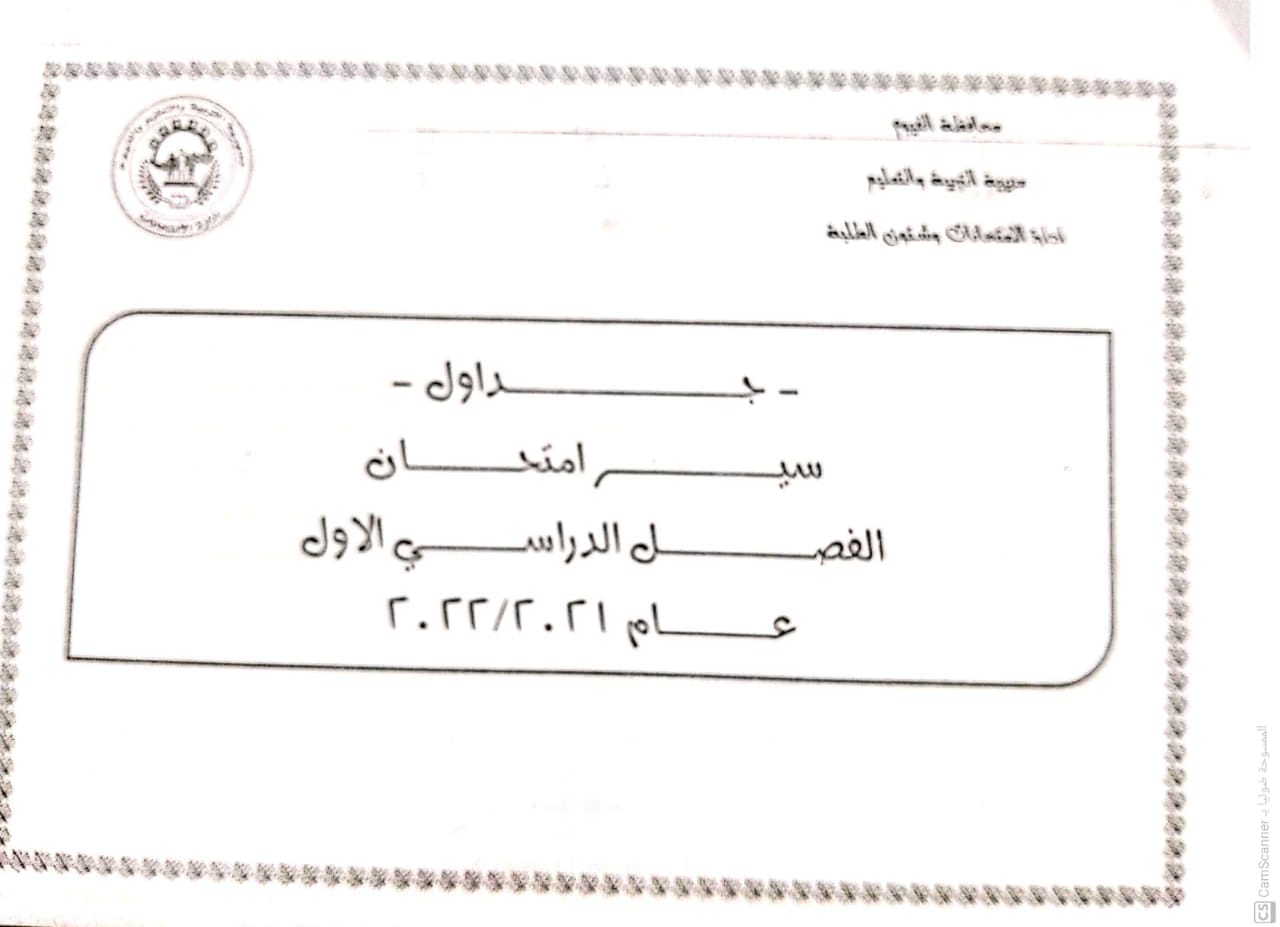 محافظة الفيوم
مديرية التربية والتعليم
ادارة الامتحانات وشئون الطلبة
- جـــــــداول -
سيـــــــر امتحـــــــان
الفصـــــــل الدراســـــــي الاول
عـــــــام ٢٠٢٢/٢٠٢١
الممسوحة ضوئيا بـ CamScanner
CS